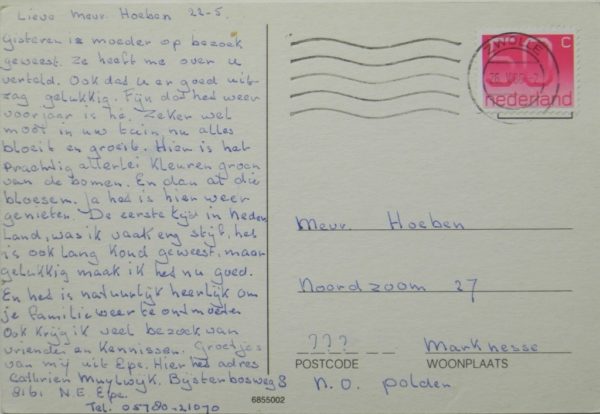 Lieve Mevr. Hoeben 22-5
Gisteren is moeder op bezoek
geweest. Ze heeft me over u
verteld. Ook dat u er goed uit-
zag gelukkig. Fijn dat het weer
voorjaar is hé. Zeker wel
mooi in uw tuin, nu alles
bloeit en groeit. Hier is het
prachtig allerlei kleuren groen
van de bomen. En dan al die
bloesem. Ja het is hier weer
genieten. De eerste tijd in Neder
Land, was ik vaak erg stijf, het
is ook lang koud geweest, maar
gelukkig maak ik het nu goed.
En het is natuurlijk heerlijk om
je familie weer te ontmoeten
Ook krijg ik veel bezoek van
vrienden en kennissen. Groetjes
van mij uit Epe. Hier het adres
Cathrien Muylwyk. Bijsterbosweg 8
8161 N.E. Epe.
Tel. 05780-21070
ZWOLLE
50 C
nederland
Mevr. Hoeben
Noordzoom 27
??? Marknesse
POSTCODE WOONPLAATS
N.O. polder
6855002